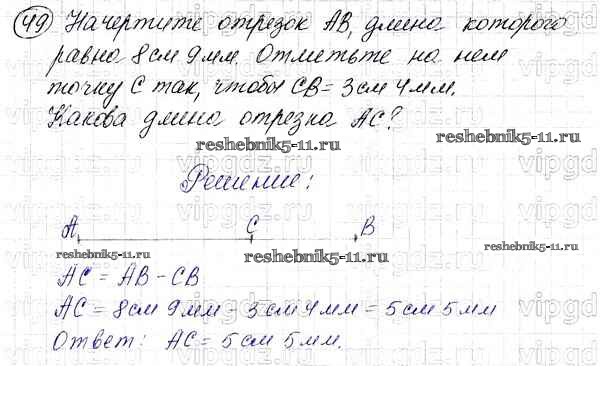 49 Начертите отрезок AB, длина которого
равна 8см 9мм. Отметьте на нем
точку С так, чтобы CB = 3см 4мм.
Какова длина отрезка AC?
reshebnik5-11.ru reshebnik5-11.ru
Решение:
A C B
reshebnik5-11.ru reshebnik5-11.ru reshebnik5-11.ru
AC = AB - CB
AC = 8см 9мм - 3см 4мм = 5см 5мм
Ответ: AC = 5см 5мм.
vipgdz.ru